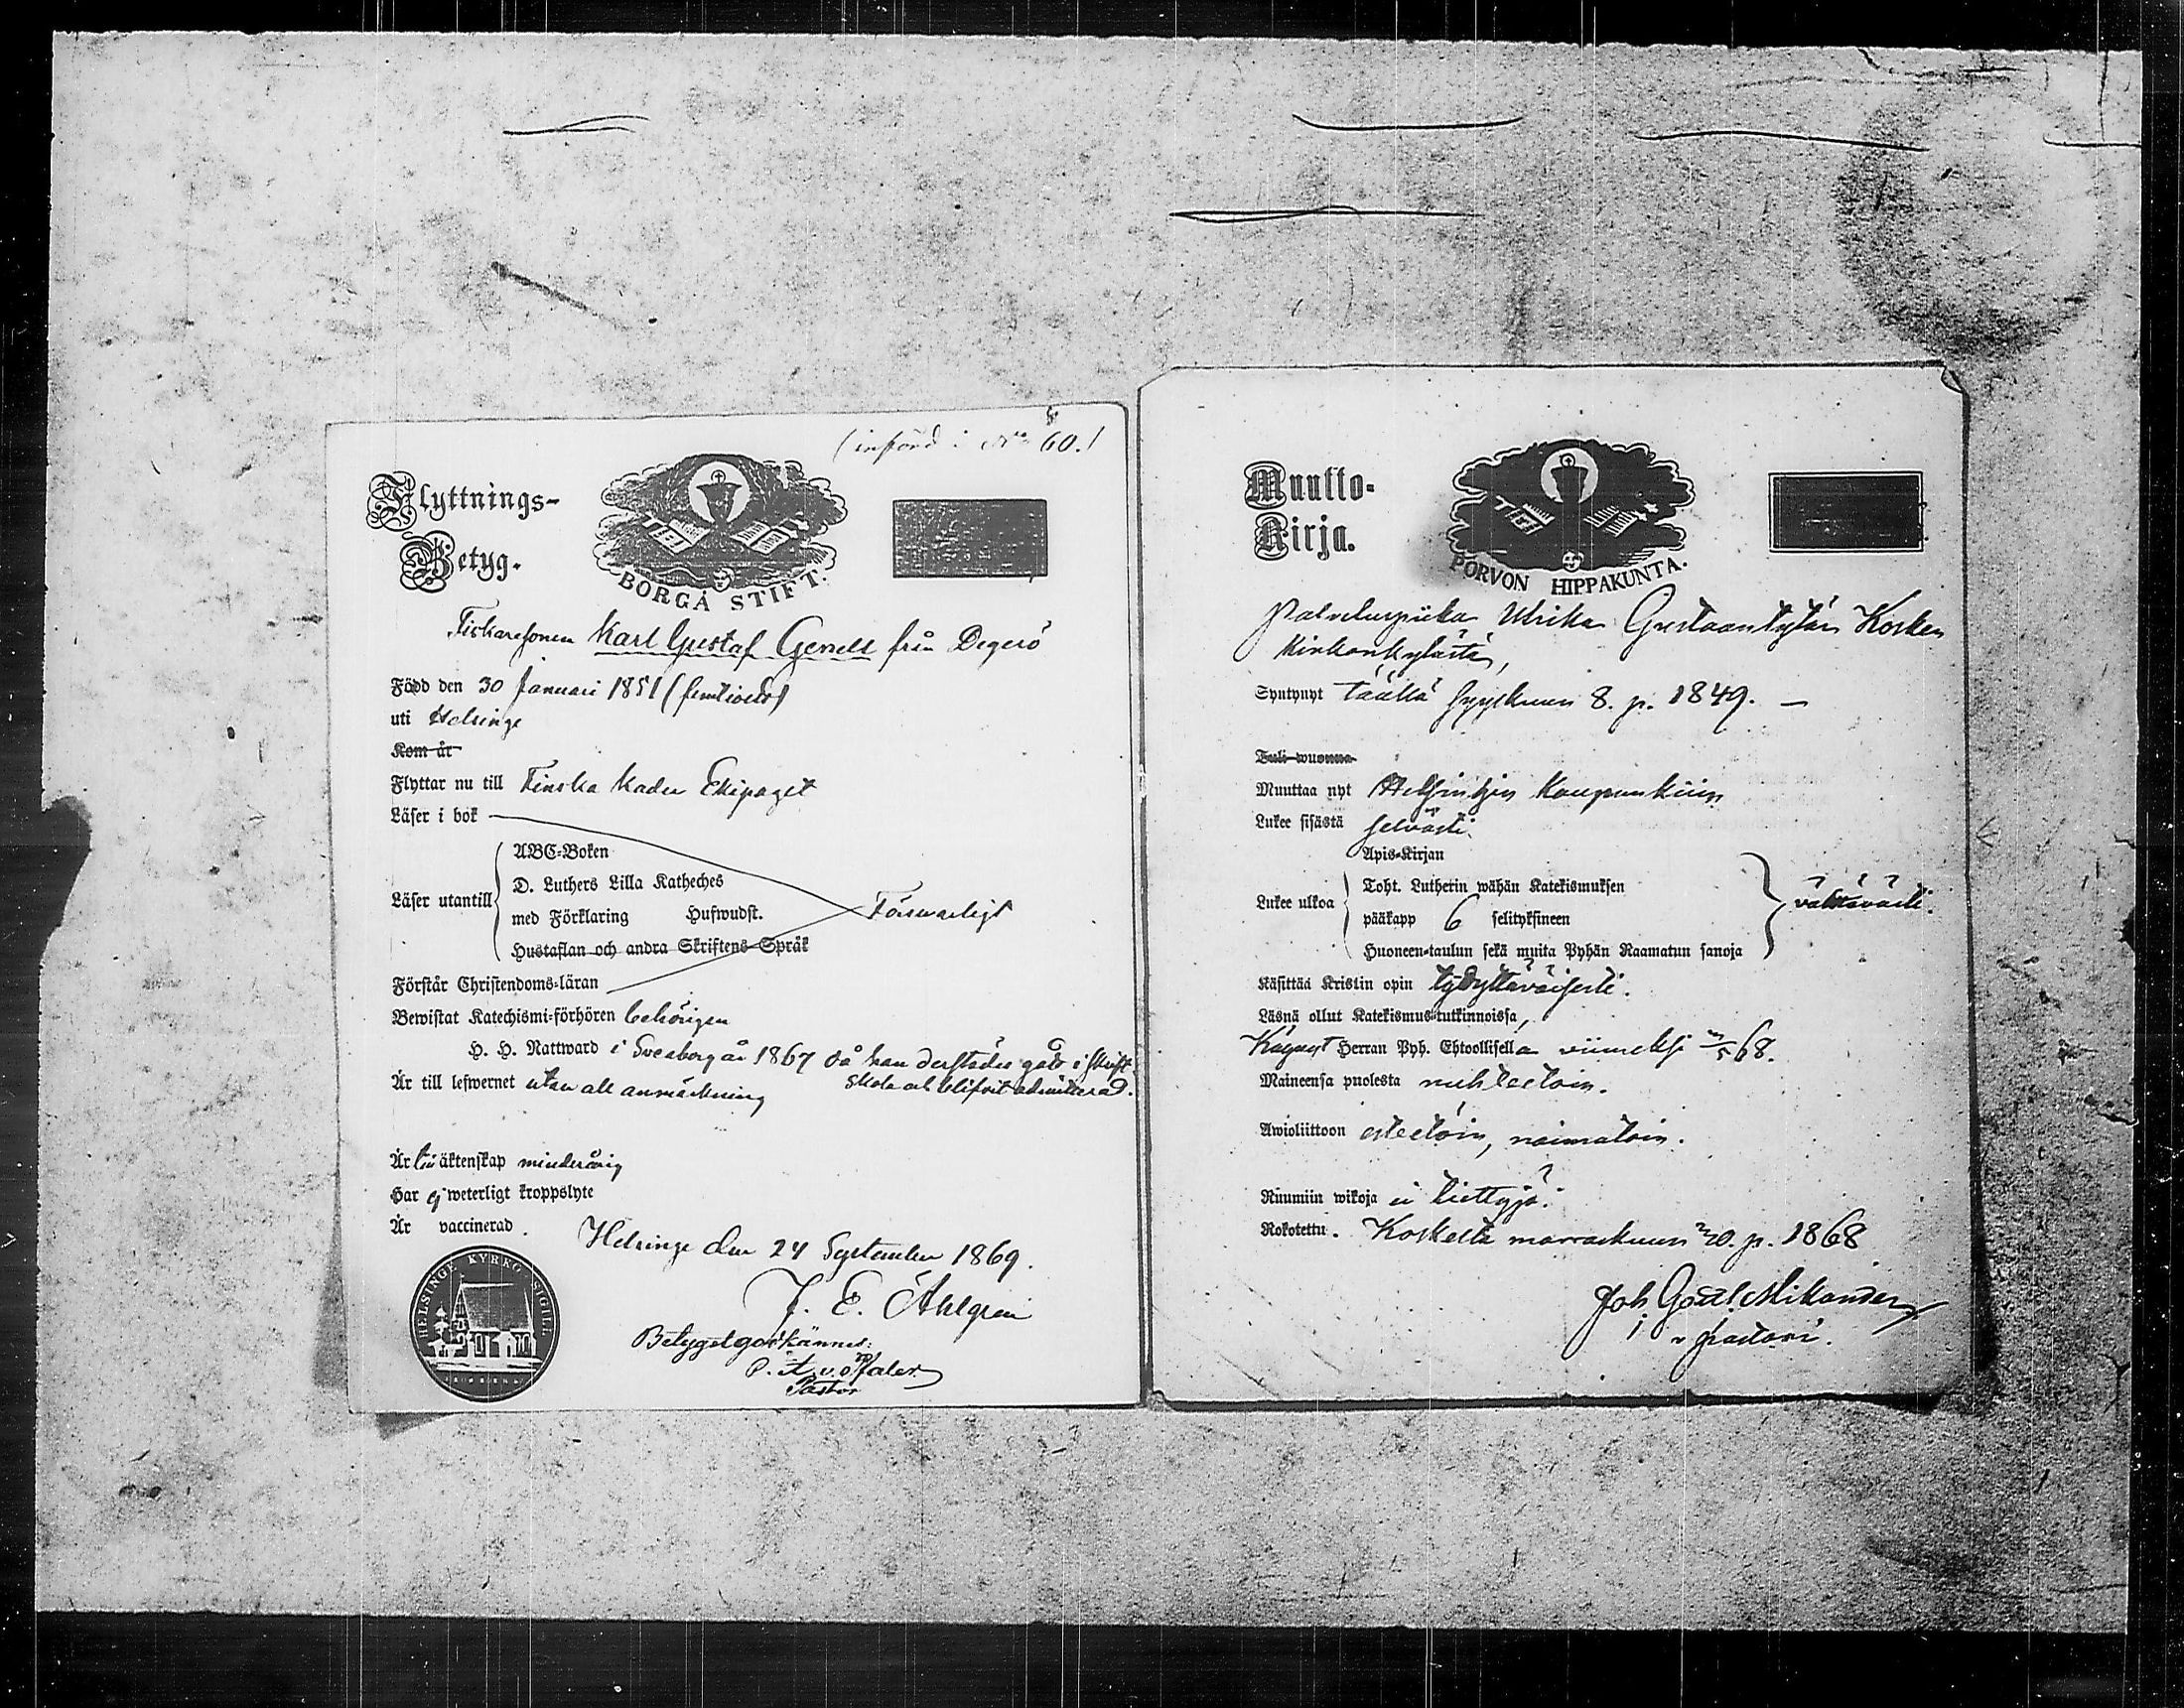 (införd i No 60.)
Flyttnings-
Betyg.
BORGÅ STIFT.
Fiskaresonen Karl Gustaf Genelt från Degerö
Född den 30 Januari 1851 (femtioett)
uti Helsinge
Kom år
Flyttar nu till Finska Kader Ekipaget
Läser i bok
ABC-Boken
D. Luthers Lilla Katheches
Läser utantill
med Förklaring Hufwudst.
Försvarligt
Hustaflan och andra Skriftens Språk
Förstår Christendoms-läran
Bewistat Katechismi-förhören behörigen
H. H. Nattward i Sveaborg år 1867 då han derstädes gått i skrift
skola och blifvit admitterad.
Är till lefwernet utan all anmärkning
Är till äktenskap minderårig
Har ej weterligt kroppslyte
Är vaccinerad.
Helsinge den 24 September 1869.
J. E. Åhlgren
Betyget godkännes:
Pastor
HELSINGE KYRKO SIGILL
Muutto-
Kirja.
PORVON HIPPAKUNTA.
Palveluspiika Ulrika Gustaantytär Kosken
Kirkonkylästä,
Syntynyt täällä Syyskuun 8. p. 1849. —
Tuli wuonna
Muuttaa nyt Helsingin Kaupunkiin
Lukee sisästä selvästi
Apis-Kirjan
Toht. Lutherin wähän Katekismuksen
Lukee ulkoa
pääkapp 6 selityksineen
välttävästi.
Huoneen-taulun sekä muita Pyhän Raamatun sanoja
Käsittää Kristin opin tydyttäväisesti.
Läsnä ollut Katekismus-tutkinnoissa,
Käynyt Herran Pyh. Ehtoollisella viimeksi 68.
Maineensa puolesta nuhteetoin.
Awioliittoon esteetöin, naimatoin.
Ruumiin wikoja ei tiettyjä.
Rokotettu. Koskella marraskuun 20. p. 1868
Joh Gott Mikander
v pastori.